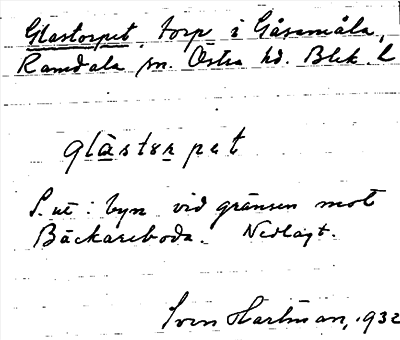 Glastorpet, torp i Gåsamåla,
Ramdala sn. Östra hd. Blek. l
glàsterpet
S. ut i byn vid gränsen mot
Bäckareboda. Nedlagt.
Sven Hartman, 1932